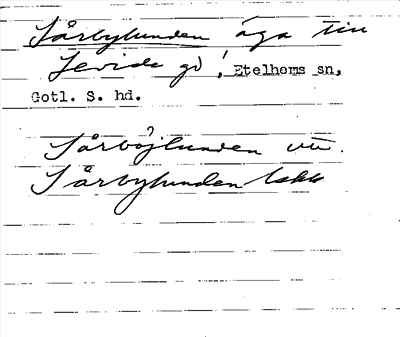 Sårbylunden äga till
Levide gd, Etelhems sn,
Gotl. S. hd.
Sårbøjlunden uu.
Sårbylunden lskk